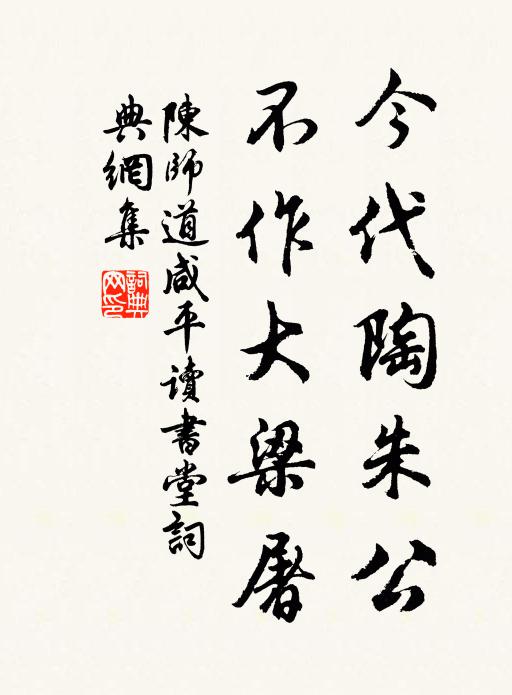 今代陶朱公
不作大梁屠
陳師道咸平讀書堂詞
典網集
詞典
网印